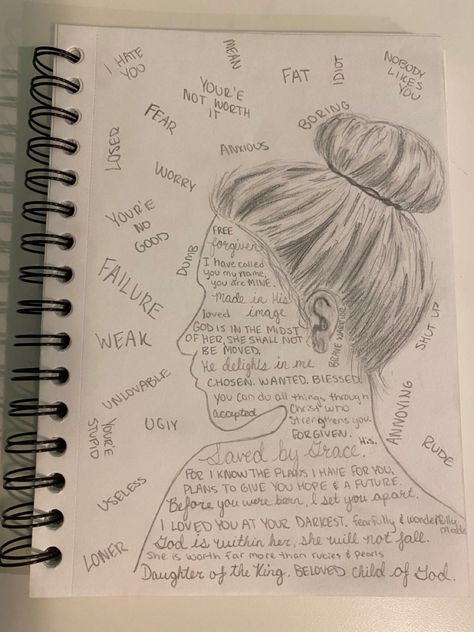 I HATE
YOU
MEAN
FAT
IDIOT
NOBODY
LIKES
YOU
YOUR'E
NOT WORTH
IT
FEAR
BORING
LOSER
ANXIOUS
WORRY
YOUR'E
NO
GOOD
DUMB
FAILURE
WEAK
UNLOVABLE
YOUR'E
STUPID
UGLY
USELESS
LONER
SHUT UP
ANNOYING
RUDE
FREE
forgiven
I have called
you my name,
you are MINE.
Made in His
loved image
GOD IS IN THE MIDST
OF HER, SHE SHALL NOT
BE MOVED.
He delights in me
CHOSEN. WANTED. BLESSED.
you can do all things through
accepted Christ who
strengthens you.
FORGIVEN.
His.
BRAVE WARRIOR
Saved by Grace.
FOR I KNOW THE PLANS I HAVE FOR YOU,
PLANS TO GIVE YOU HOPE & A FUTURE.
Before you were born, I set you apart.
I LOVED YOU AT YOUR DARKEST. fearfully & wonderfully
made
God is within her, she will not fall.
She is worth far more than rubies & pearls
Daughter of the King. BELOVED child of God.